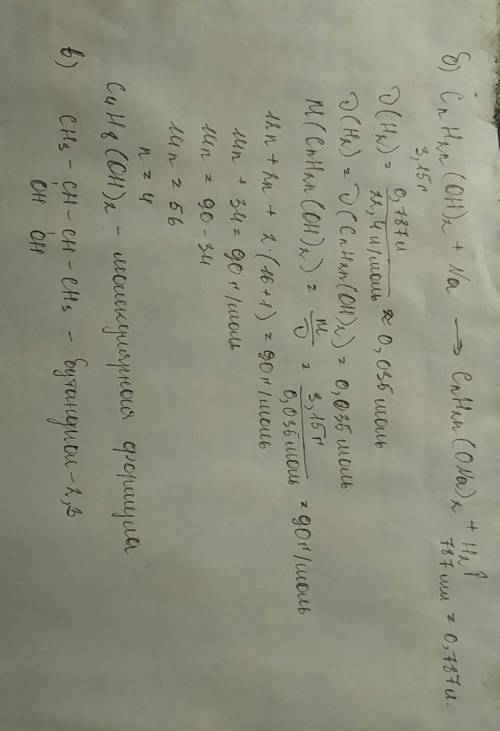 б) CnH2n(OH)2 + Na → CnH2n(ONa)2 + H2↑
3,15г 787мл = 0,787л.
ν(H2) = 0,787л / 22,4л/моль ≈ 0,035моль
ν(H2) = ν(CnH2n(OH)2) = 0,035моль
M(CnH2n(OH)2) = m/ν = 3,15г / 0,035моль = 90г/моль
12n + 2n + 2·(16+1) = 90г/моль
14n + 34 = 90г/моль
14n = 90-34
14n = 56
n = 4
C4H8(OH)2 - молекулярная формула
в) CH3 - CH - CH - CH3 - бутандиол-2,3
OH OH